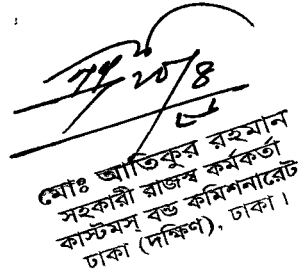 ২০/৪
মোঃ আতিকুর রহমান
সহকারী রাজস্ব কর্মকর্তা
কাস্টমস্ বন্ড কমিশনারেট
ঢাকা (দক্ষিণ), ঢাকা।